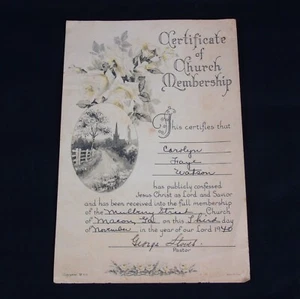 Certificate
of
Church
Membership
This certifies that
Carolyn
Faye
Watson
has publicly confessed
Jesus Christ as Lord and Savior
and has been received into the full membership
of the Mulberry Street Church of
Macon, Ga. on this Third day
of November in the year of our Lord 1940
George Stoves
Pastor